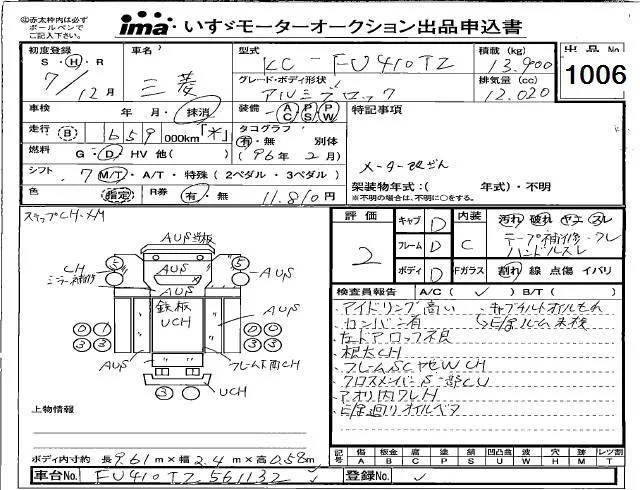 ㊟赤太枠内は必ず
ボールペンで
ご記入下さい。
ima いすゞモーターオークション出品申込書
初度登録 車名 型式 積載(kg) 出品No
S・H・R 三菱 KC-FU410TZ 13,900 1006
7/12月 グレード・ボディ形状 排気量(cc)
アルミブロック 12,020
車検 年・月・抹消 装備 AC PS PW 特記事項
走行 B 659 000km「*」 タコグラフ
有・無 別体
燃料 G・D・HV 他( ) (96年2月) メーター改ざん
シフト 7 M/T・A/T・特殊(2ペダル・3ペダル) 架装物年式:( 年式)・不明
色 指定 R券 有・無 11,810円 ※不明の場合は、不明に○をする。
ステップCH・XM
評価 2
キャブ D 内装 C 汚れ 破れ ヤニ スレ
フレーム D テープ補修・クレ
ハンドルスレ
ボディ D Fガラス 割れ 線 点傷 イバリ
AUS 当板
CH
ミラー補修
S AUS S AUS
AUS
鉄板
UCH
AUS
0 0 0 0
3 3 3 3
AUS フレーム下廻CH
3 UCH
検査員報告 A/C( ✓ ) B/T( )
・アイドリング高い ・キャブチルトオイルもれ
・カンバン有
・左ドアロック不良
・根太CH
・フレームSC ヤセW CH
・クロスメンバーS一部CU
・アオリ内クレH
・E/G廻りオイルベタ
上物情報
ボディ内寸約 長9.61m×幅2.4m×高0.58m
記号 傷A 板金B 腐C 塗P 錆S 凹凸曲U 波W 穴H 跡M レツ割T
車台No. FU410TZ-561132 登録No. ✓